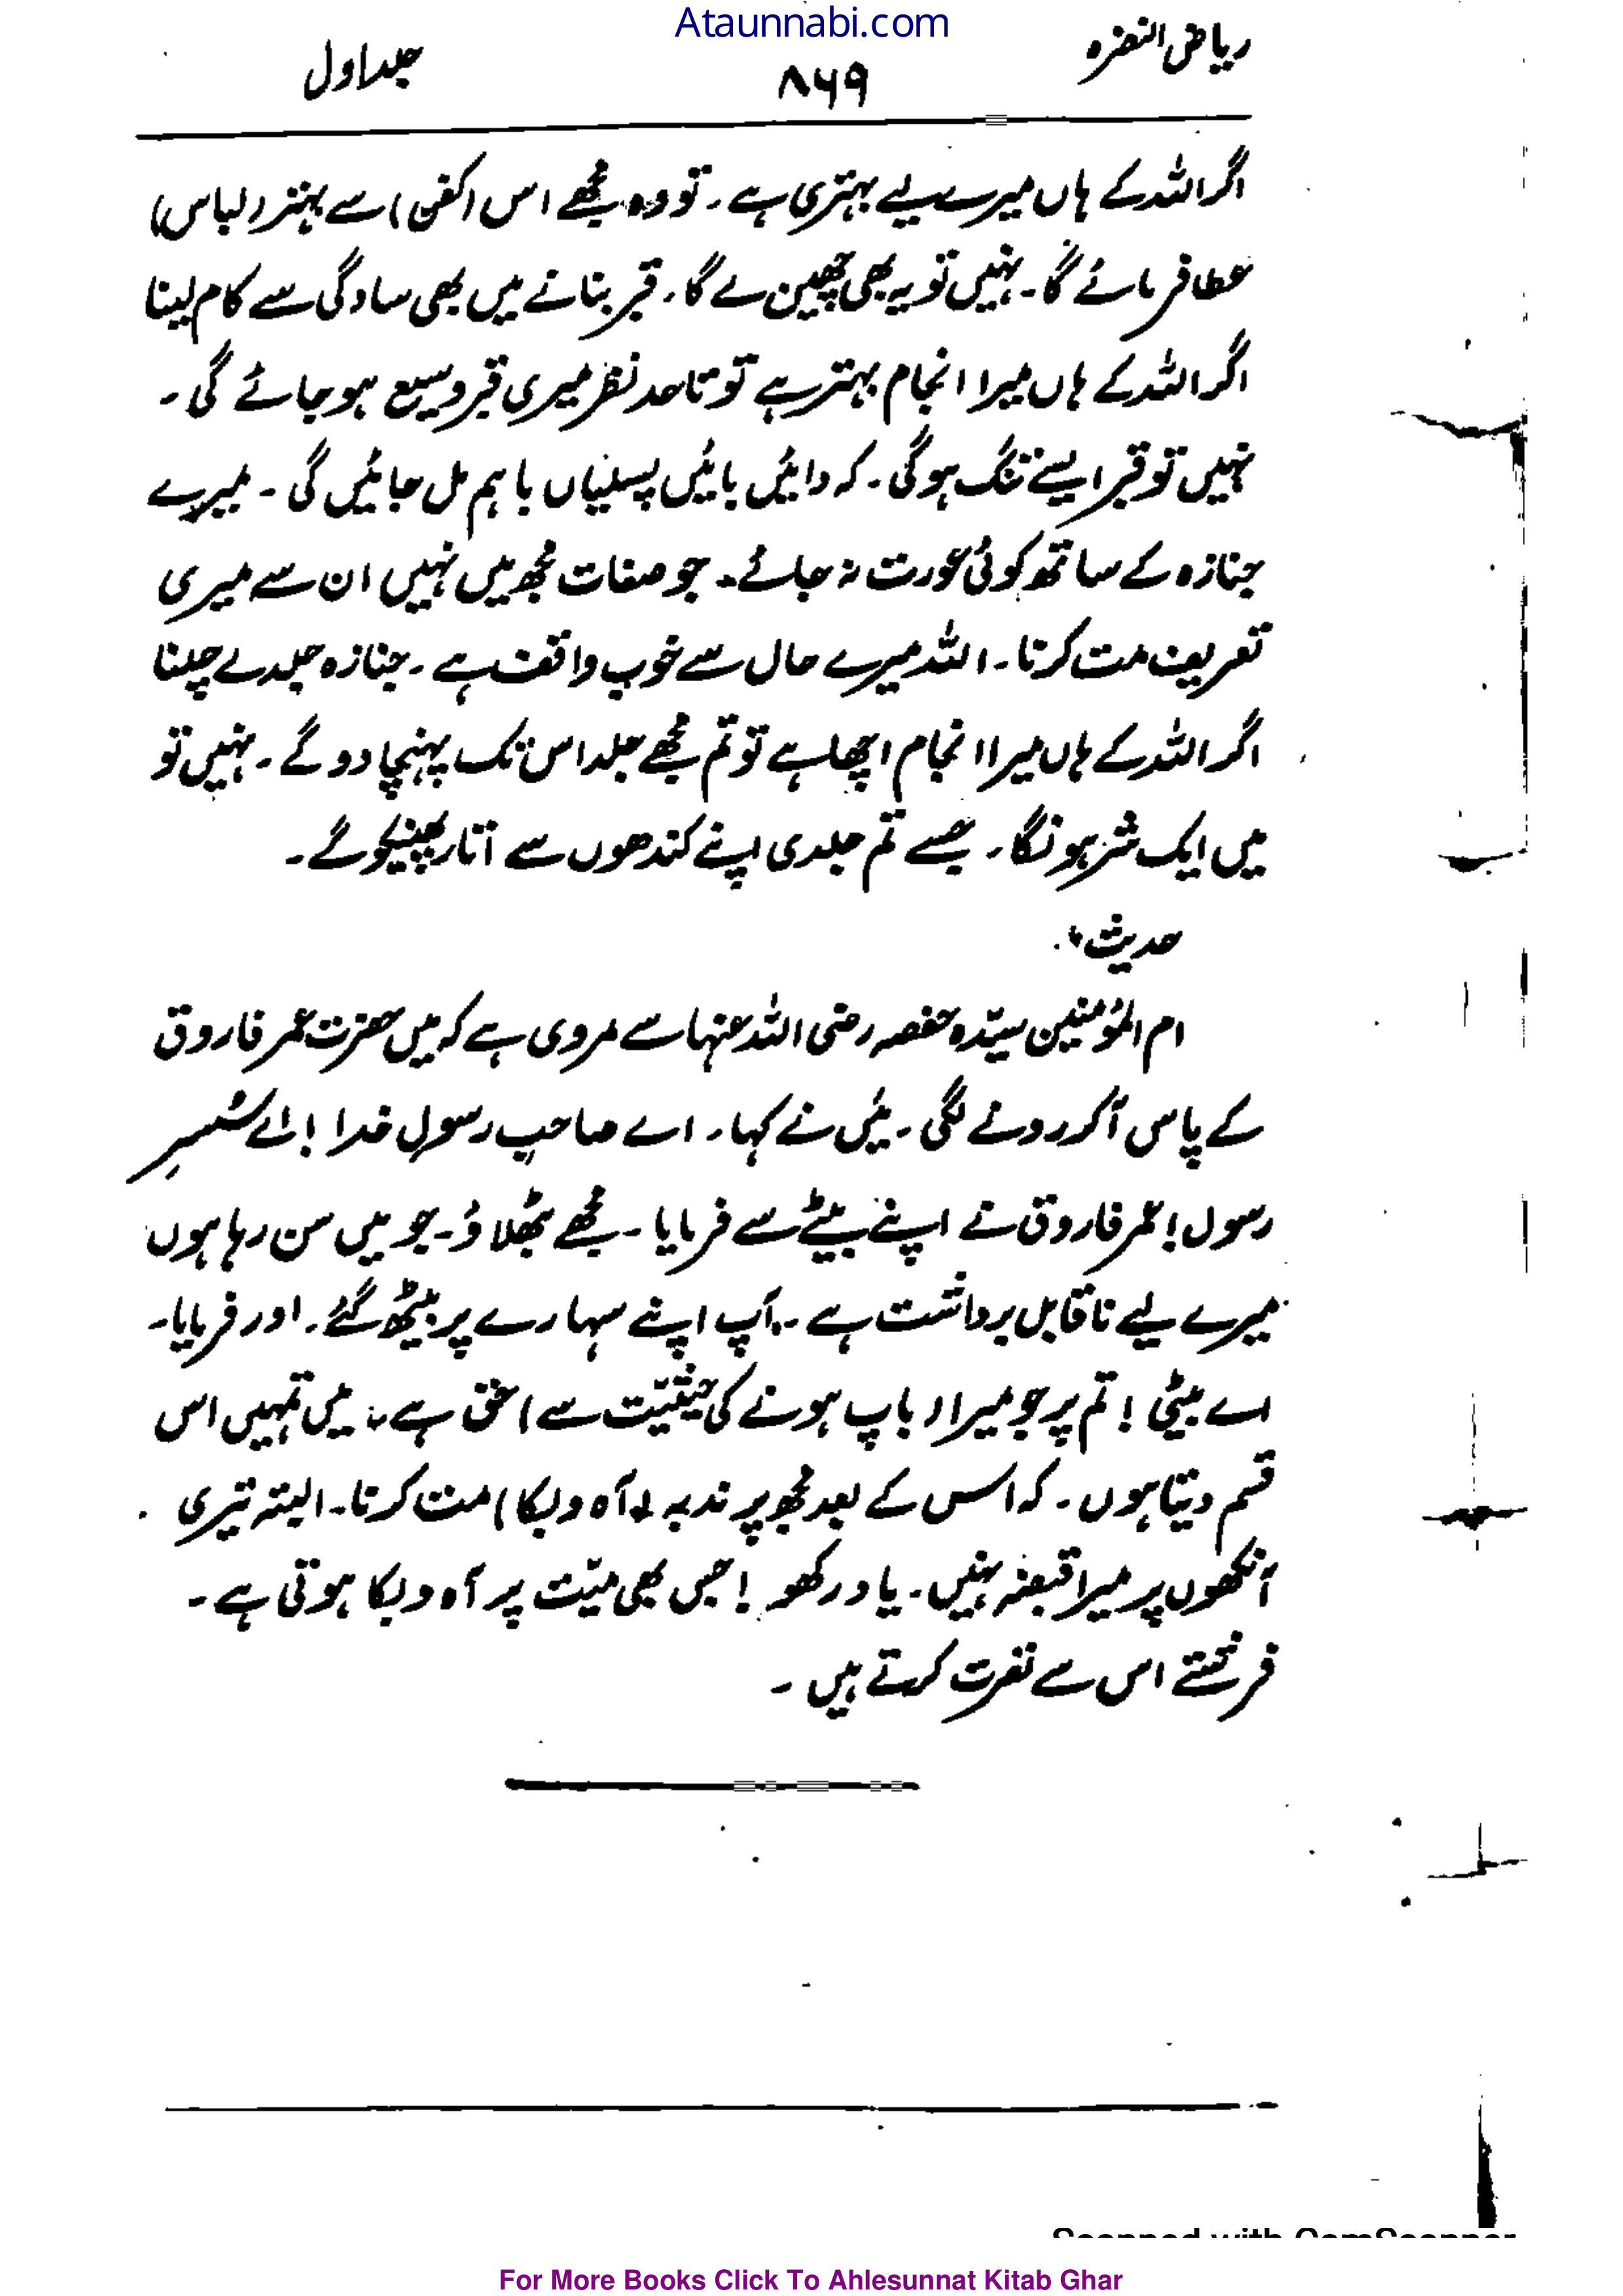 Ataunnabi.com
ریاض النضرہ ۸۶۹ جلد اول
اگر اللہ کے ہاں میرے لیے بہتری ہے۔ تو وہ مجھے اس (کفن) سے بہتر (لباس)
عطا فرمائے گا۔ نہیں تو یہ بھی چھین لے گا۔ قبر بنانے میں بھی سادگی سے کام لینا
اگر اللہ کے ہاں میرا انجام بہتر ہے تو تاحد نظر میری قبر وسیع ہو جائے گی۔
نہیں تو قبر ایسے تنگ ہوگی۔ کہ دائیں بائیں پسلیاں باہم مل جائیں گی۔ میرے
جنازہ کے ساتھ کوئی عورت نہ جائے۔ جو صفات مجھ میں نہیں ان سے میری
تعریف مت کرنا۔ اللہ میرے حال سے خوب واقف ہے۔ جنازہ جلد لے چلنا
اگر اللہ کے ہاں میرا انجام اچھا ہے تو تم مجھے جلد اس تک پہنچا دو گے۔ نہیں تو
میں ایک شر ہونگا۔ جسے تم جلدی اپنے کندھوں سے اتار پھینکو گے۔
حدیث
ام المؤمنین سیّدہ حفصہ رضی اللہ عنہا سے مروی ہے کہ میں حضرت عمر فاروق
کے پاس آ کر رونے لگی۔ میں نے کہا۔ اے صاحبِ رسولِ خدا! اے خسرِ
رسول! عمر فاروق نے اپنے بیٹے سے فرمایا۔ مجھے بٹھلاؤ۔ جو میں سن رہا ہوں
میرے لیے ناقابل برداشت ہے۔ آپ اپنے سہارے پر بیٹھ گئے۔ اور فرمایا۔
اے بیٹی! تم پر جو میرا (باپ ہونے کی حیثیّت سے) حق ہے، میں تمہیں اس
قسم دیتا ہوں۔ کہ اس کے بعد مجھ پر ندبہ (آہ وبکا) مت کرنا۔ البتہ تیری
آنکھوں پر میرا قبضہ نہیں۔ یاد رکھو! جس بھی میّت پر آہ وبکا ہوتی ہے۔
فرشتے اس سے نفرت کرتے ہیں۔
Scanned with CamScanner
For More Books Click To Ahlesunnat Kitab Ghar